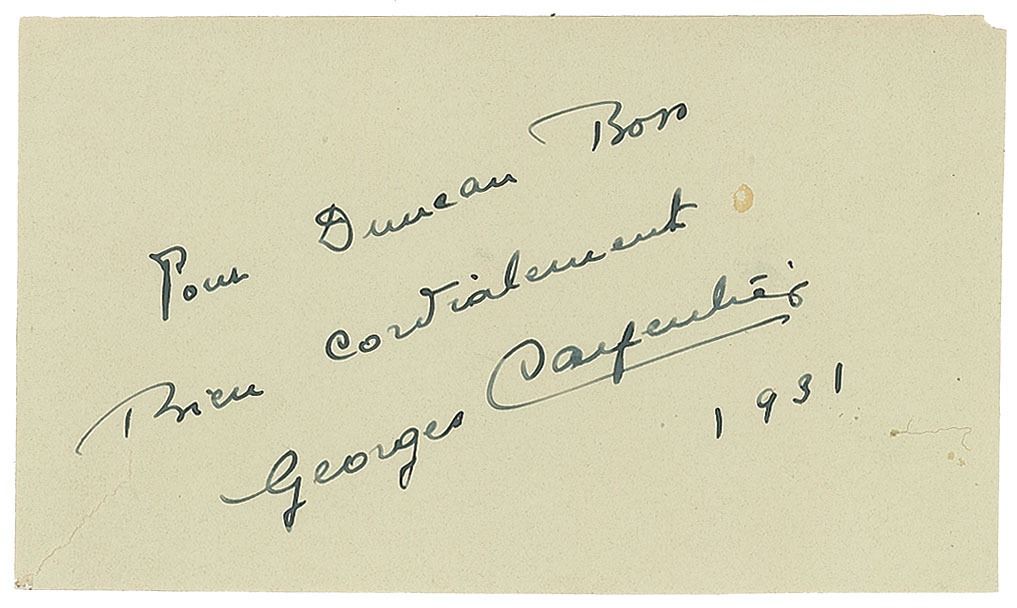 Pour Duncan Boss
Bien cordialement
Georges Carpentier
1931